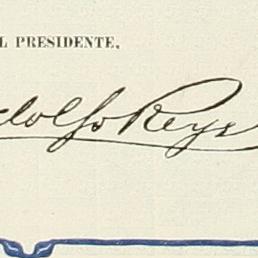 L PRESIDENTE.
dolfo Reyes